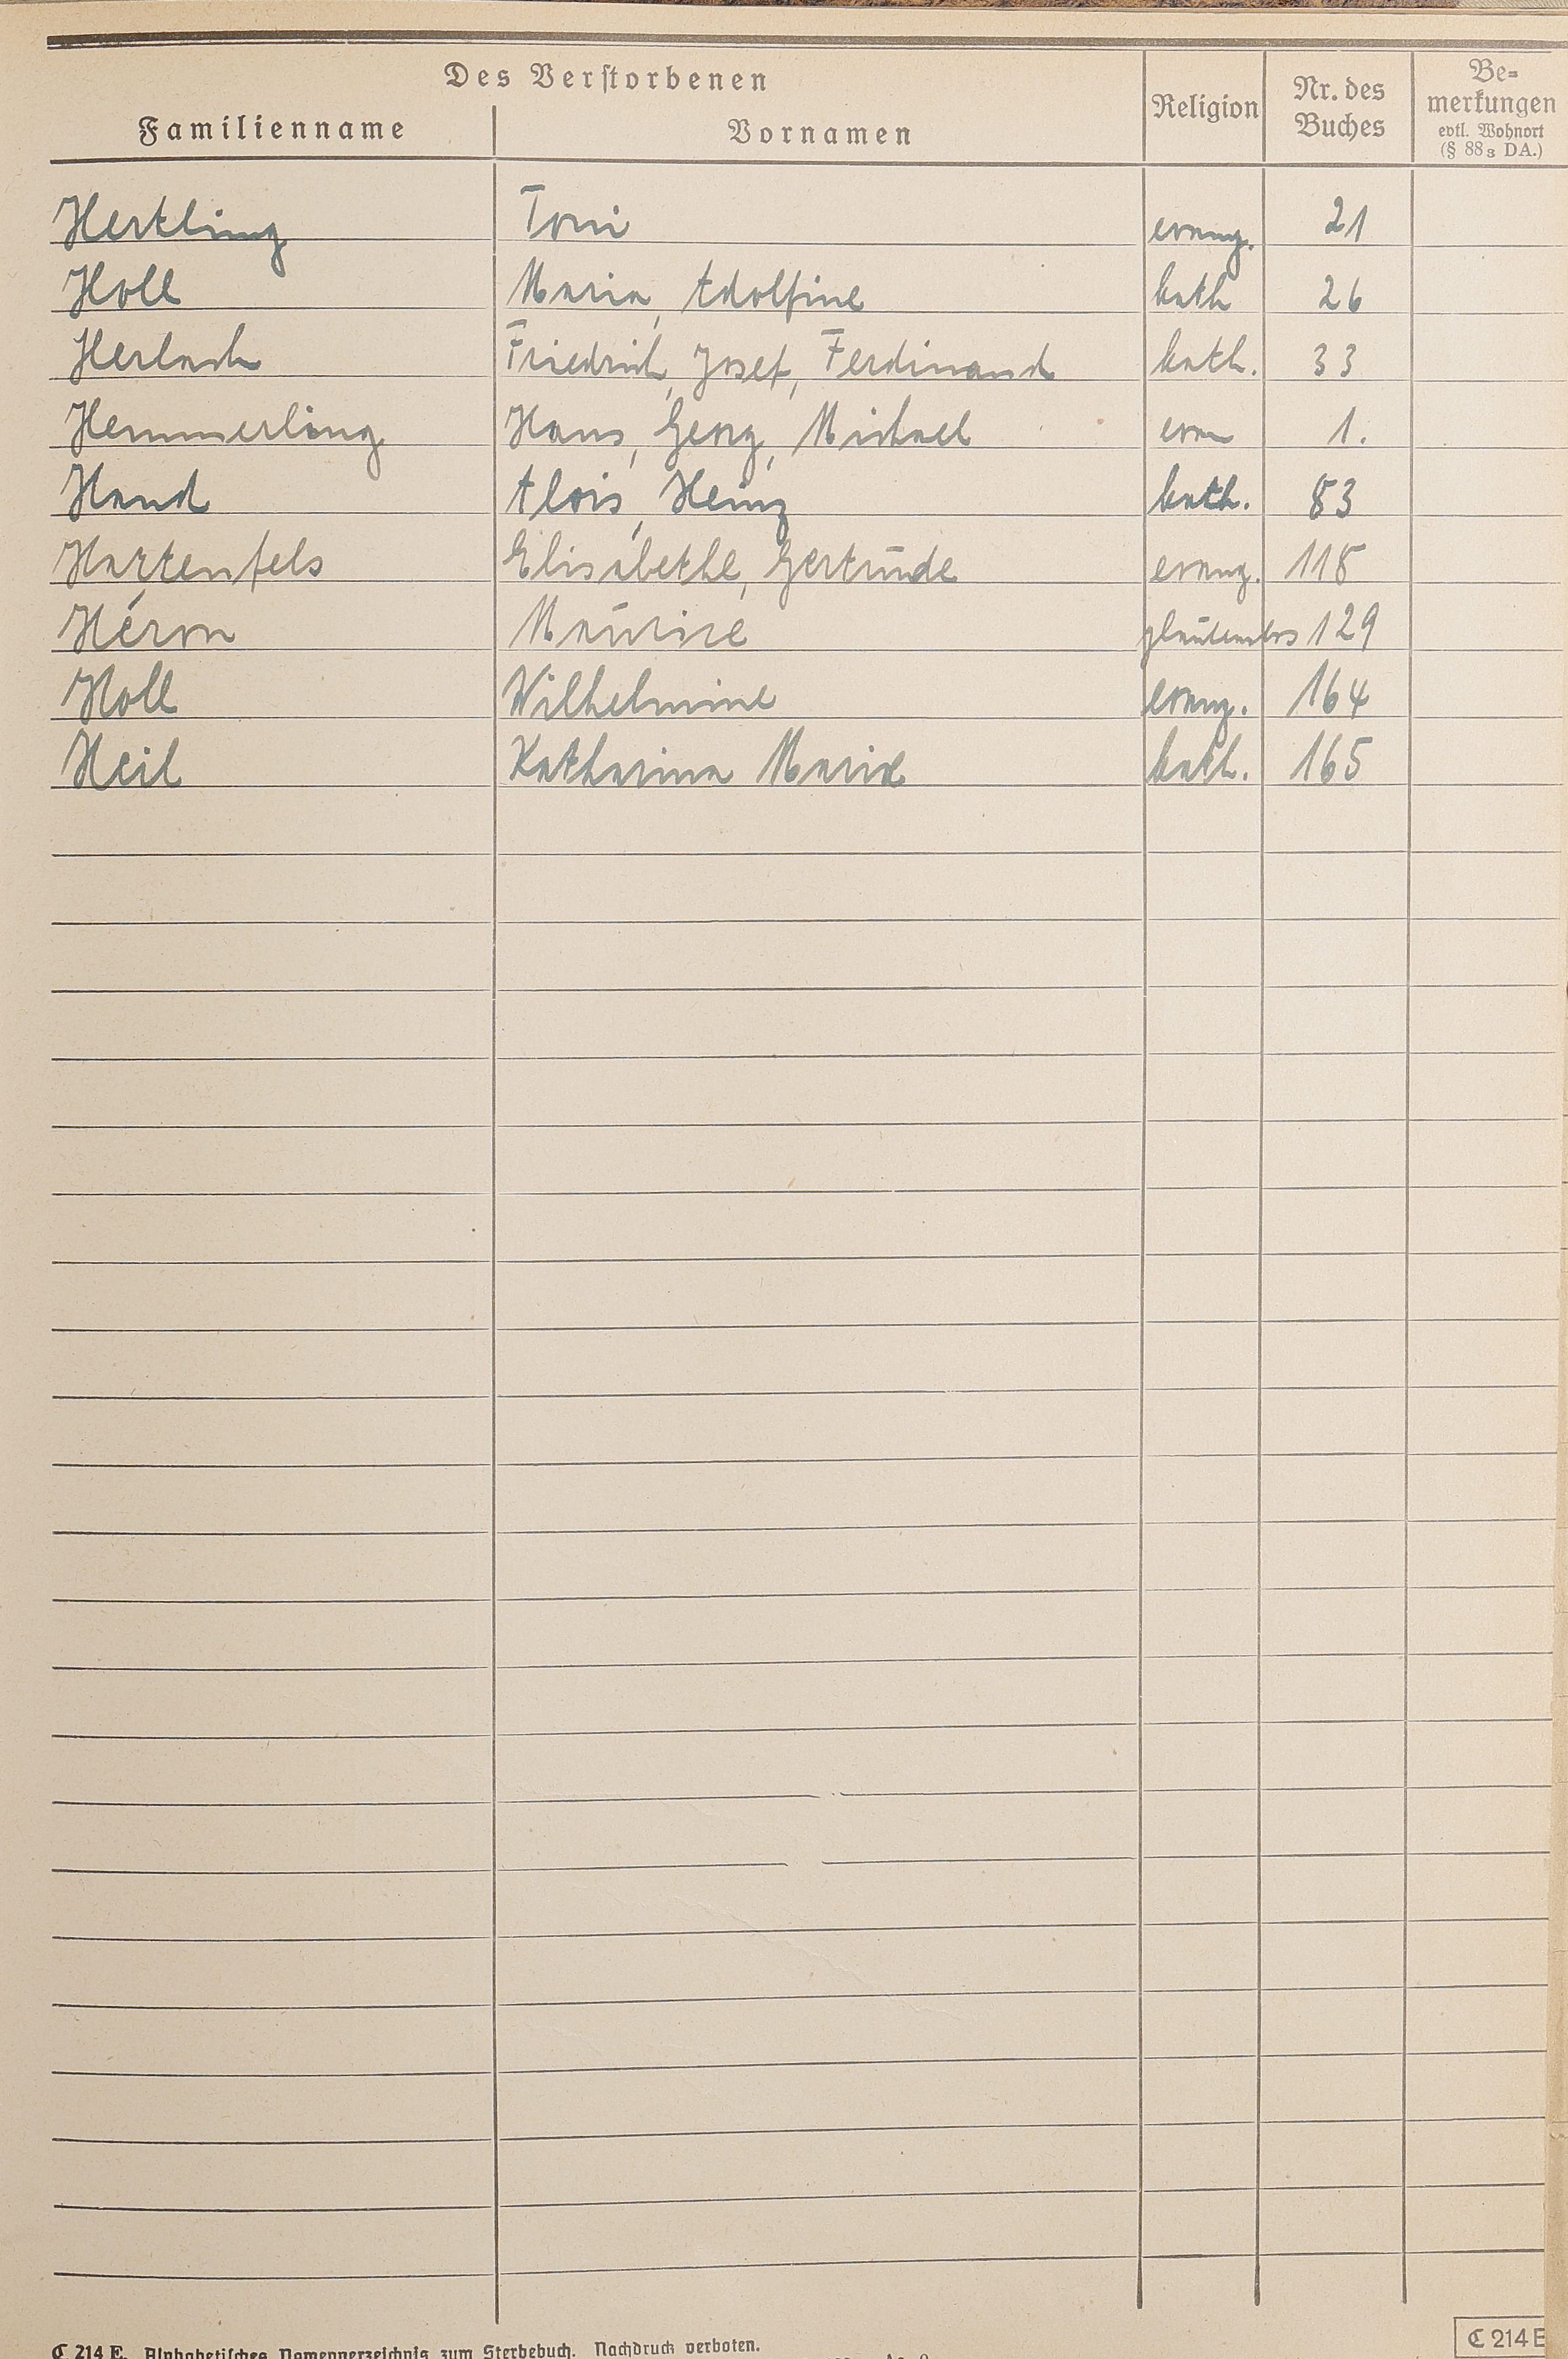 Des Verstorbenen
Familienname Vornamen Religion Nr. des Buches Be-
merkungen
evtl. Wohnort
(§ 88 3 DA.)
Hertling Toni evang. 21
Holl Maria, Adolfine kath 26
Herlach Friedrich, Josef, Ferdinand kath. 33
Hemmerling Hans, Georg, Michael evan 1.
Hand Alois, Heinz kath. 83
Hartenfels Elisabethe, Gertrude evang. 118
Héron Maurice glaubenslos 129
Holl Wilhelmine evang. 164
Heil Katharina Maria kath. 165
C 214 E. Alphabetisches Namenverzeichnis zum Sterbebuch. Nachdruck verboten.
C 214 E